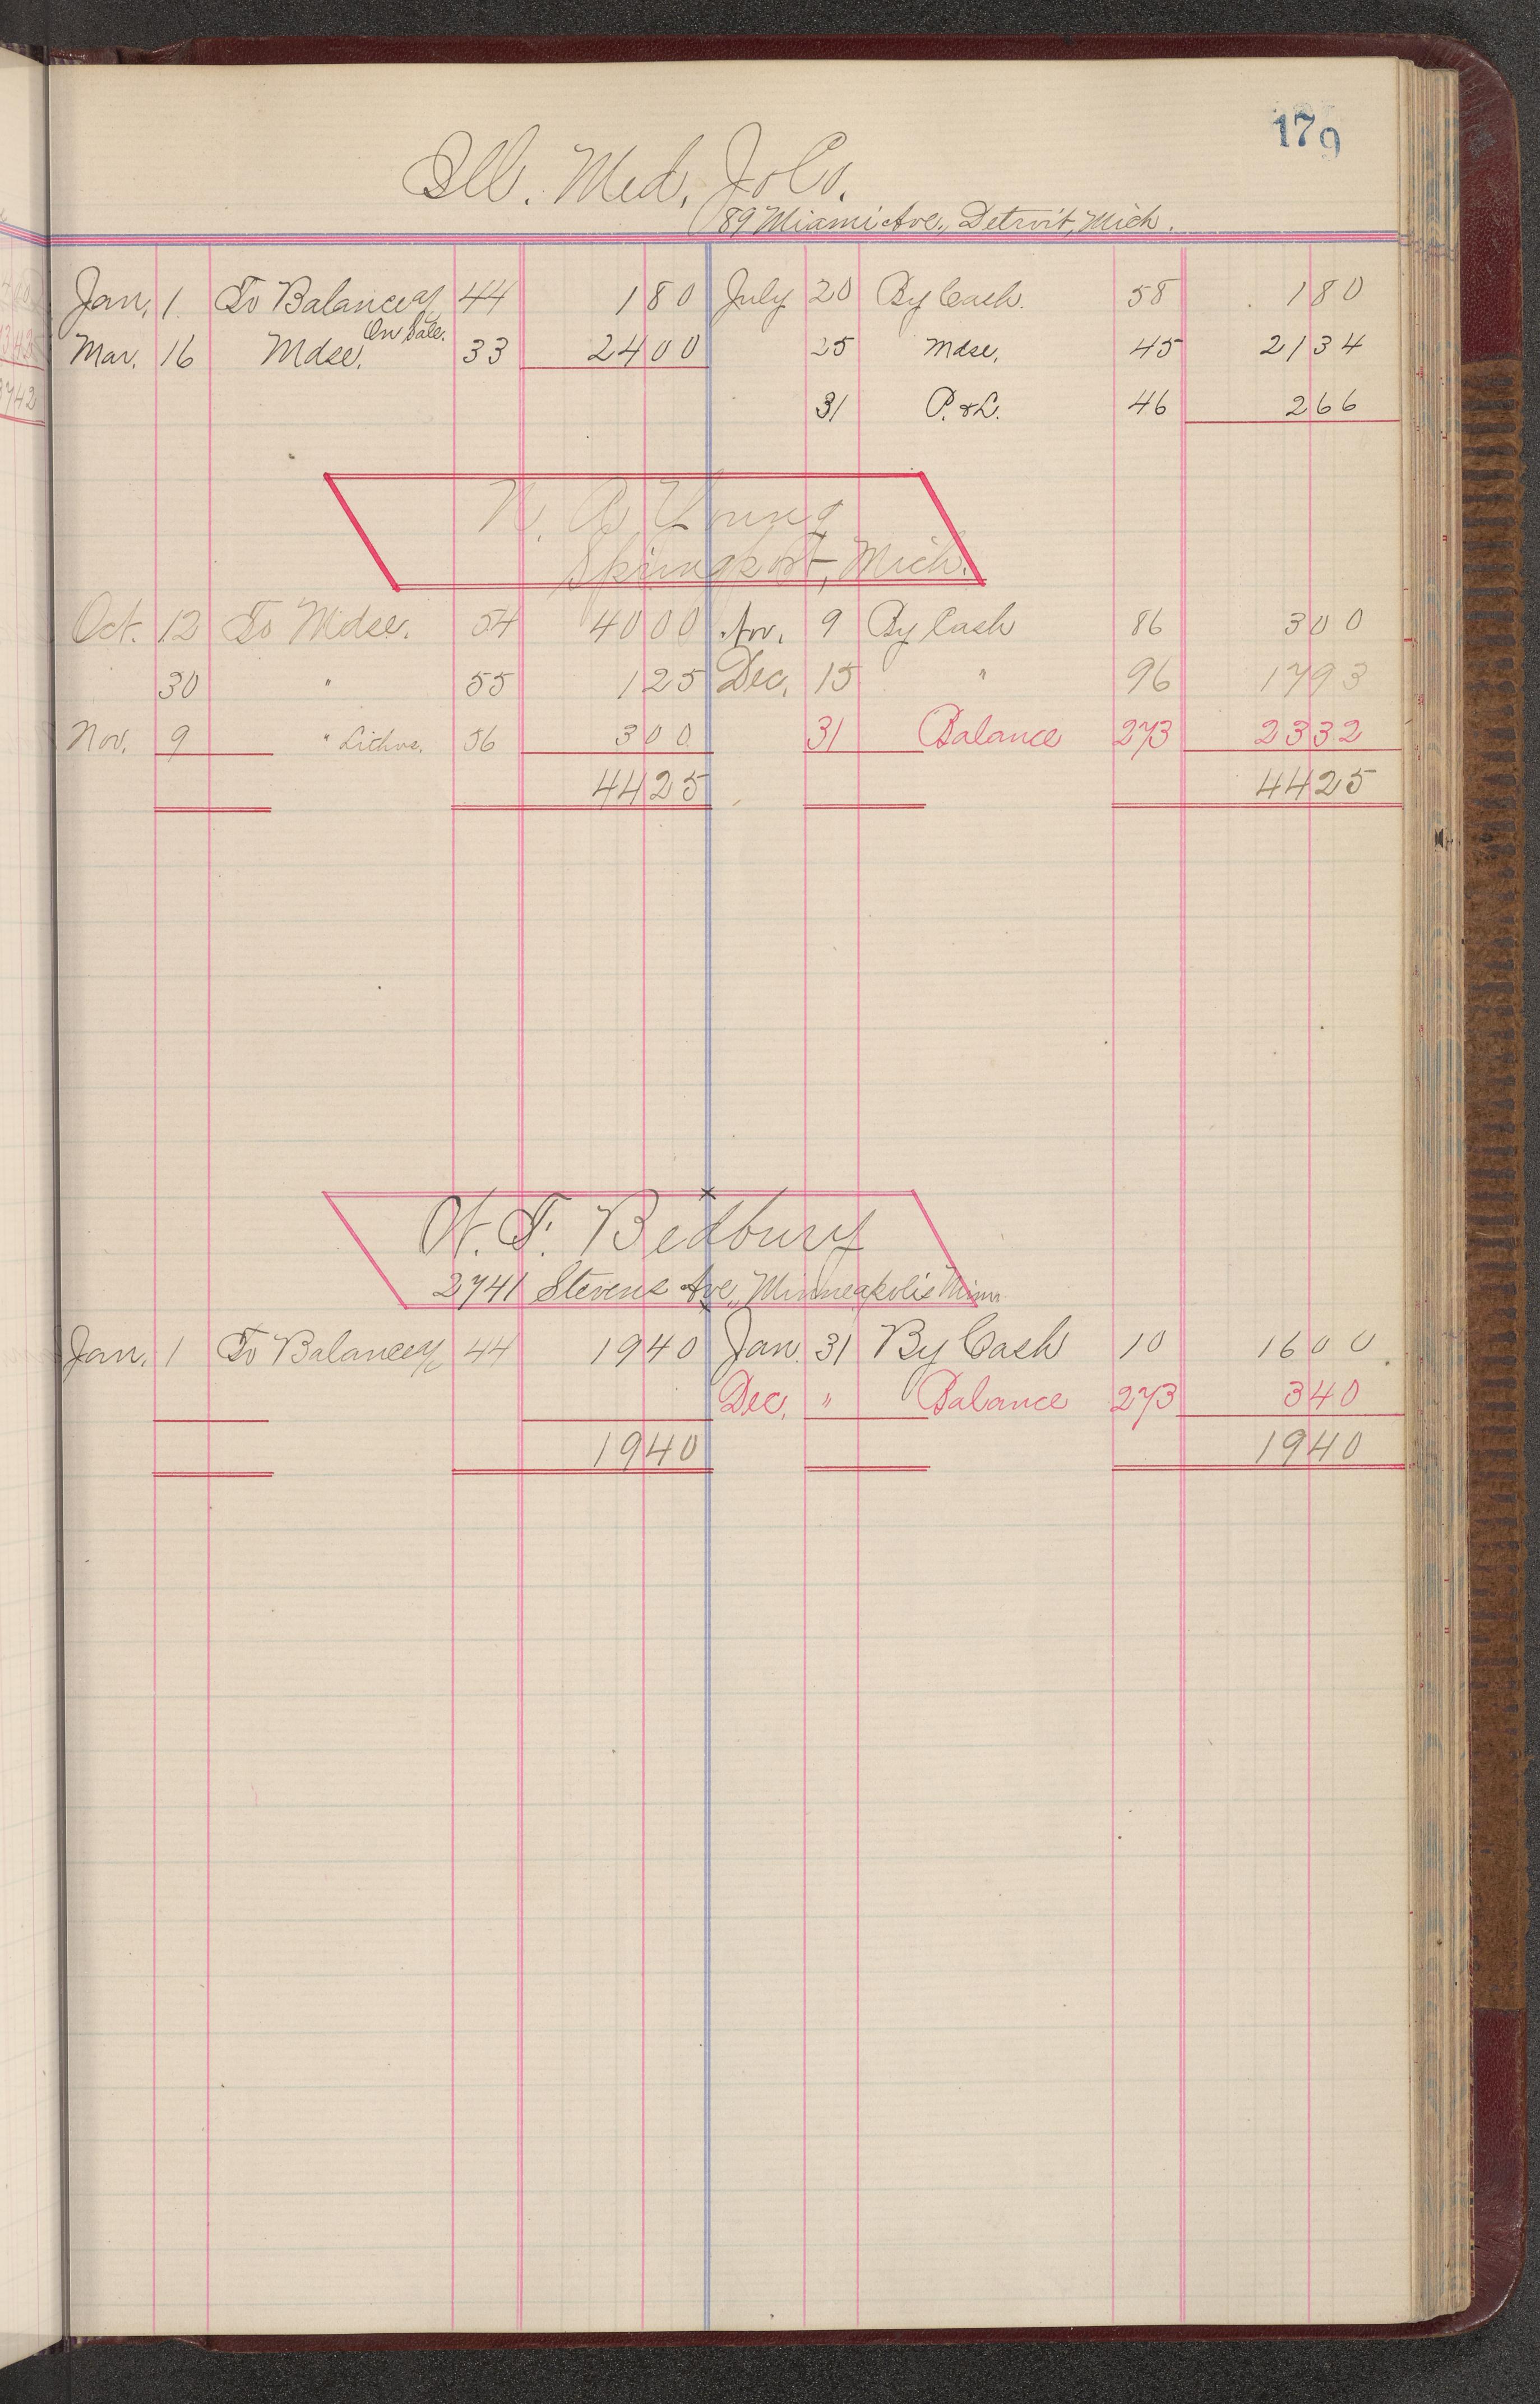 179
Ill. Med. Jo Co.
89 Miami Ave., Detroit, Mich.
Jan. 1 To Balance 44 180 July 20 By Cash. 58 180
On Sale.
Mar. 16 Mdse. 33 2400 25 Mdse. 45 2134
31 P. & L. 46 266
Young
Springport, Mich.
Oct. 12 To Mdse. 54 4000 Nov. 9 By Cash 86 300
30 " 55 125 Dec. 15 " 96 1793
Nov. 9 " Lithos. 56 300 31 Balance 273 2332
4425 4425
F. Bedbury
2741 Stevens Ave., Minneapolis Minn.
Jan. 1 To Balance 44 1940 Jan. 31 By Cash 10 1600
Dec. " Balance 273 340
1940 1940